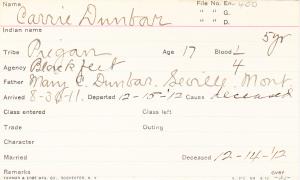 Name Carrie Dunbar File No. En-
Indian name 5 yr
Tribe Piegan Age 17 Blood 1/4
Agency Blackfeet
Father Mary C. Dunbar. Seville, Mont.
Arrived 8-30-11. Departed 12-15-'12 Cause deceased
Class entered Class left
Trade Outing
Character
Married Deceased 12-14-'12
Remarks over